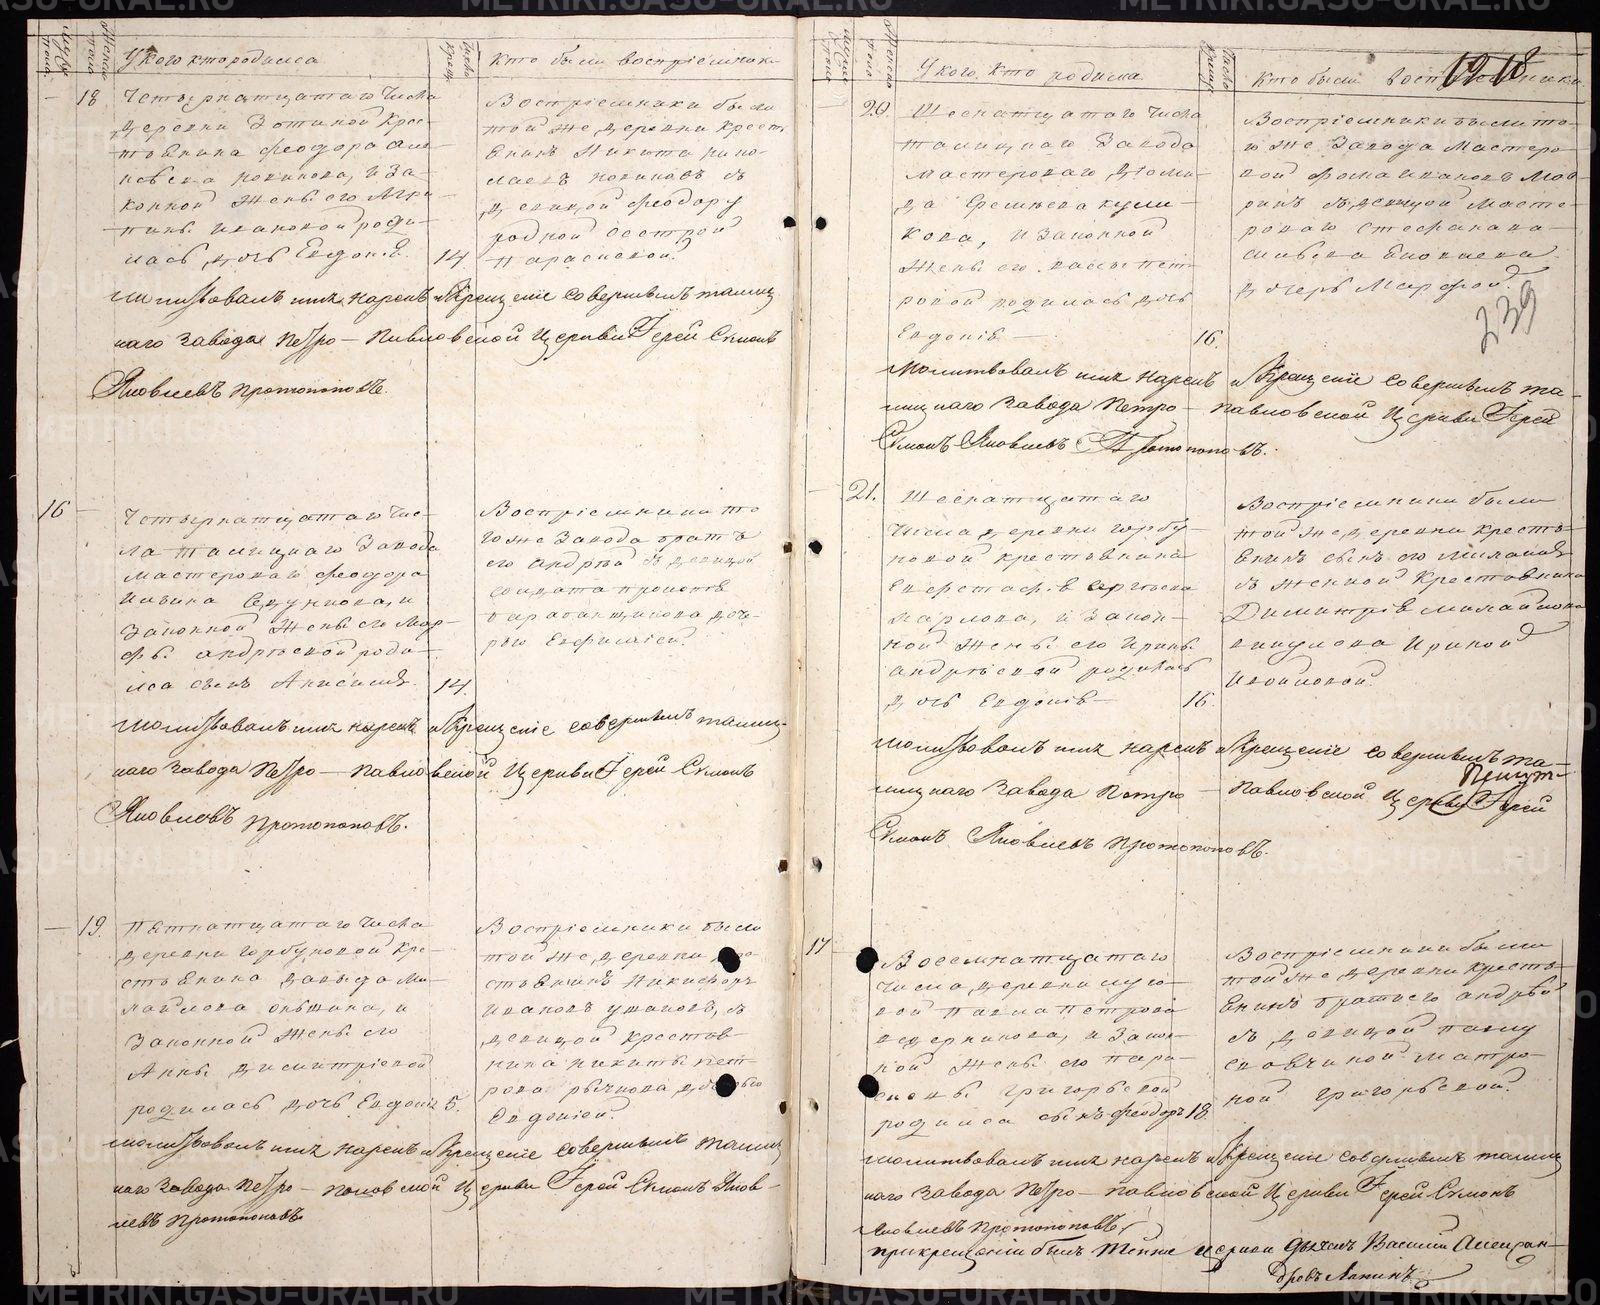 мужеск. пола
Женска пола
У кого кто родился
Число Крещ.
Кто были воспріемники
18
Четырнатцатаго Числа
деревни Зотиной крес-
тьянина Феодора Але
ксѣева новикова, и за-
конной Жены его Агри
пины Ивановой роди-
лась дочь Евдокія. 14
Воспріемники были
той же деревни крест
янинъ Никита нико-
лаевъ новиковъ съ
девицой Феодору
родной сестрой
Параскевой.
Молитвовалъ имя нарекъ и Крещеніе совершилъ талиц
каго завода Петро-Павловской Церкви Іерей Симонъ
Яковлевъ Протопоповъ.
16
Четырнатцатаго Чис-
ла талицкаго Завода
мастероваго Феодора
законной Жены его Мар-
фы андрѣевой роди-
лса сынъ Анисимъ. 14.
Воспріемники то
го же Завода братъ
его Андрѣй съ девицой
солдата
дочь-
рью Евфиміей.
Молитвовалъ имя нарекъ и Крещеніе совершилъ талиц-
каго Завода Петро-Павловской Церкви Іерей Симонъ
Яковлевъ Протопоповъ.
19.
Пятнатцатаго Числа
деревни Горбуновой кре-
стьянина давыда Ми-
хайлова и
Законной Жены его
Анны димитріевой
родилась дочь Евдокія 15.
Воспріемники были
той же деревни
стьянинъ Никифоръ
Ивановъ ушаковъ, съ
девицой крестьян-
нина никиты пет-
рова рычкова дочерью
Евдокіей.
Молитвовалъ имя нарекъ и Крещеніе совершилъ талиц
каго Завода Петро-Павловской Церкви Іерей Симонъ Яков-
левъ Протопоповъ
Женска пола
У кого, кто родился
Число Крещ.
Кто были воспріемники
18
239
20.
Шеснатцатаго Числа
талицкаго Завода
мастероваго Діоми-
да Еремѣева кули-
кова, и Законной
Жены его пет-
ровой родилась дочь
Евдокія 16.
Воспріемники были то-
го же Завода мастеро-
вой Фома Ивановъ
съ девицой масте-
роваго Стефана ва-
сильева
дочерью Марфой.
Молитвовалъ имя нарекъ и Крещеніе совершилъ та-
лицкаго Завода Петро-Павловской Церкви Іерей
Симонъ Яковлевъ Протопоповъ.
21.
Шеснатцатаго
Числа деревни горбу-
новой крестьянина
Евстафія Сергѣева
карлова, и Закон-
ной Жены его Ирины
андрѣевой родилась
дочь Евдокія 16.
Воспріемники были
той же деревни кресть-
янинъ сынъ его Михаилъ
съ женкой крестьянина
Димитрія михайлова
викулова Ириной
Молитвовалъ имя нарекъ и Крещеніе совершилъ та-
лицкаго Завода Петро-Павловской Церкви Іерей
Симонъ Яковлевъ Протопоповъ.
17
Восемнатцатаго
Числа деревни луго-
вой Павла Петрова
ведерникова, и Закон-
ной Жены его Пара-
скевы григорьевой
родился сынъ Феодоръ 18.
Воспріемники были
той же деревни кресть-
янинъ братъ его андрѣй
съ девицой павлу
свояченой матро-
ной григорьевой.
Молитвовалъ имя нарекъ и Крещеніе совершилъ талиц
каго Завода Петро-Павловской Церкви Іерей Симонъ
Яковлевъ Протопоповъ
при крещеніи былъ Тойже церкви Дьячекъ Василій Алексан-
дровъ Лапинъ
METRIKI.GASO-URAL.RU